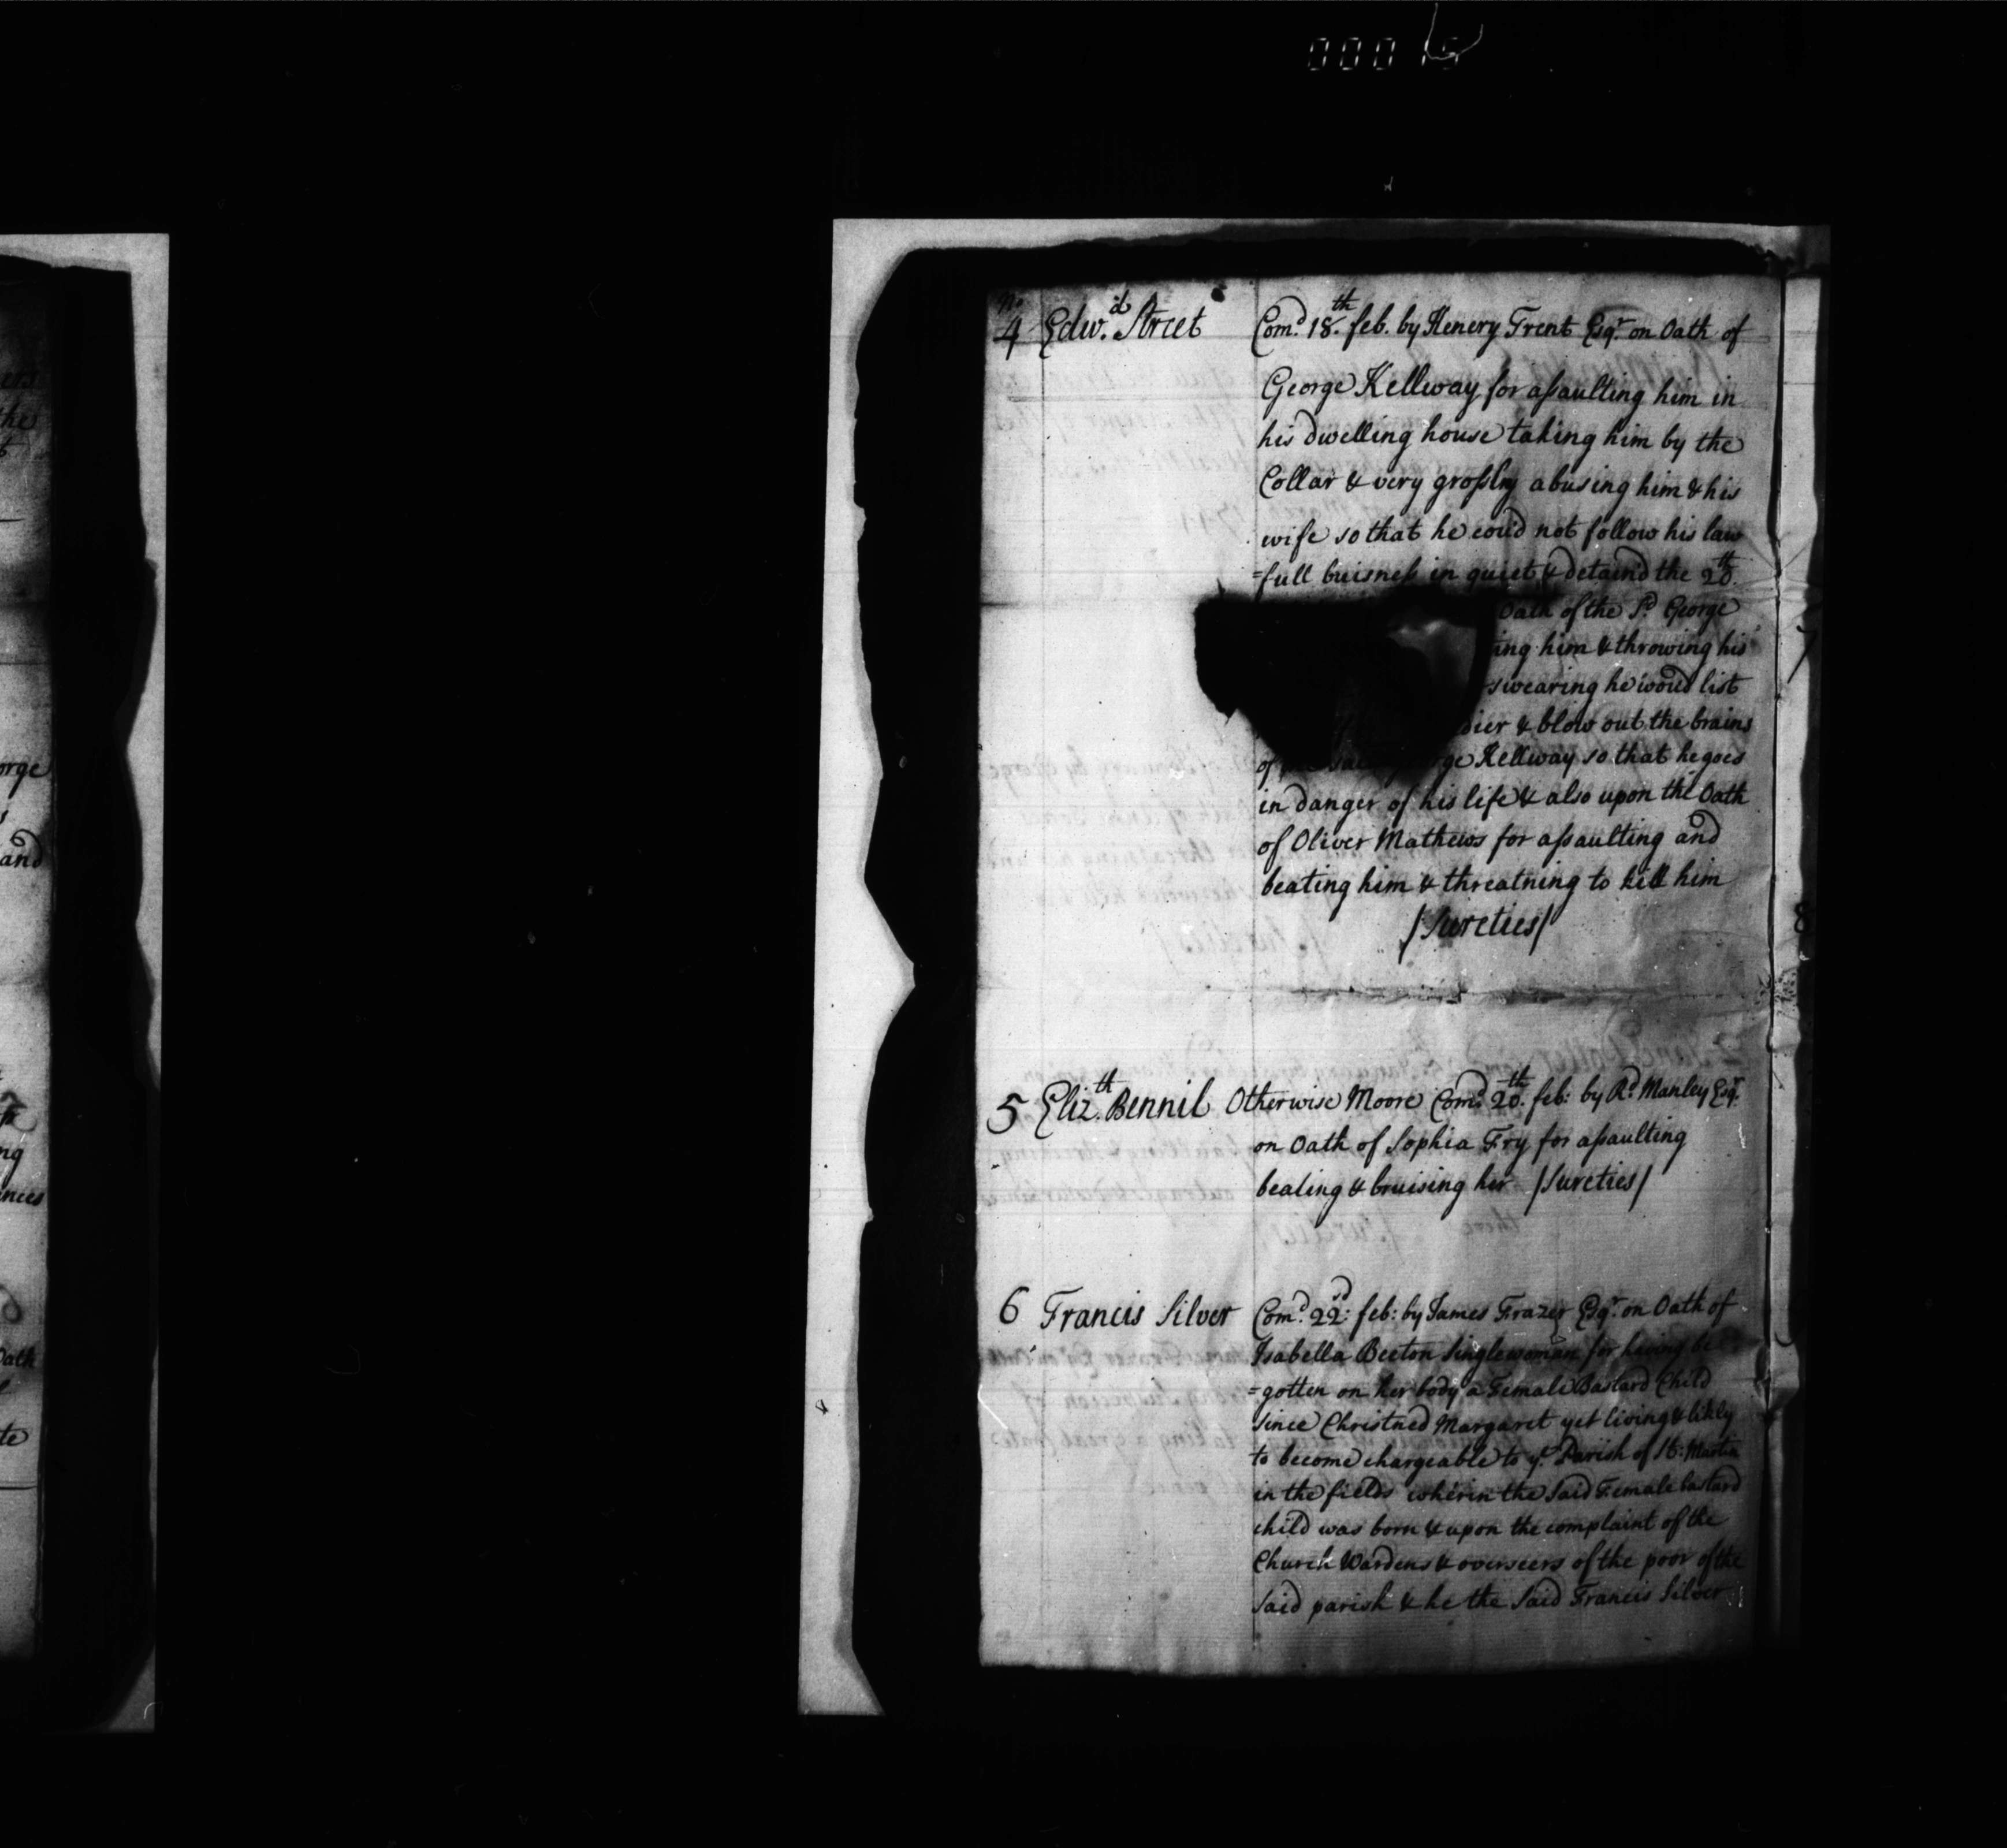 00015
No
4 Edwd. Street Comd. 18th. feb. by Henery Trent Esqr. on Oath of
George Kellway for assaulting him in
his dwelling house taking him by the
Collar & very grossly abusing him & his
wife so that he coud not follow his law
=full buisness in quiet & detaind the 20th.
Oath of the Sd. George
ing him & throwing his
swearing he woud list
dier & blow out the brains
of ge Kellway so that he goes
in danger of his life & also upon the Oath
of Oliver Mathews for assaulting and
beating him & threatning to kill him
/Sureties/
5 Elizth. Bennil Otherwise Moore Comd. 20th. feb: by Rd. Manley Esqr.
on Oath of Sophia Fry for assaulting
beating & bruising her /Sureties/
6 Francis Silver Comd. 22d: feb: by James Frazer Esqr. on Oath of
Isabella Beeton Singlewoman for having be
=gotten on her body a Female Bastard Child
since Christned Margaret yet living & likly
to become chargeable to ye. Parish of St. Martin
in the fields wherin the Said Female bastard
child was born & upon the complaint of the
Church Wardens & overseers of the poor of the
Said parish & he the Said Francis Silver
ers
the
orge
and
ng
nces
Oath
te
7
8